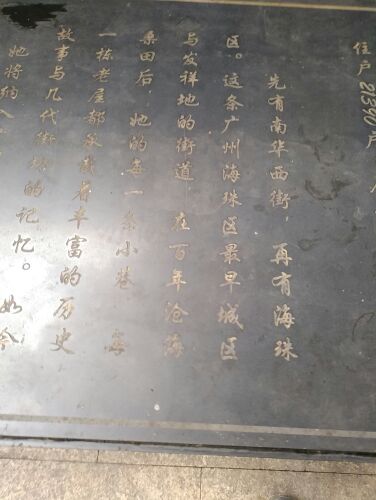 住户21390户
先有南华西街，再有海珠
区。这条广州海珠区最早城区
与发祥地的街道，在百年沧海
桑田后，她的每一条小巷、每
一栋老屋都承载着丰富的历史
故事与几代街坊的记忆。如今
她将纳入